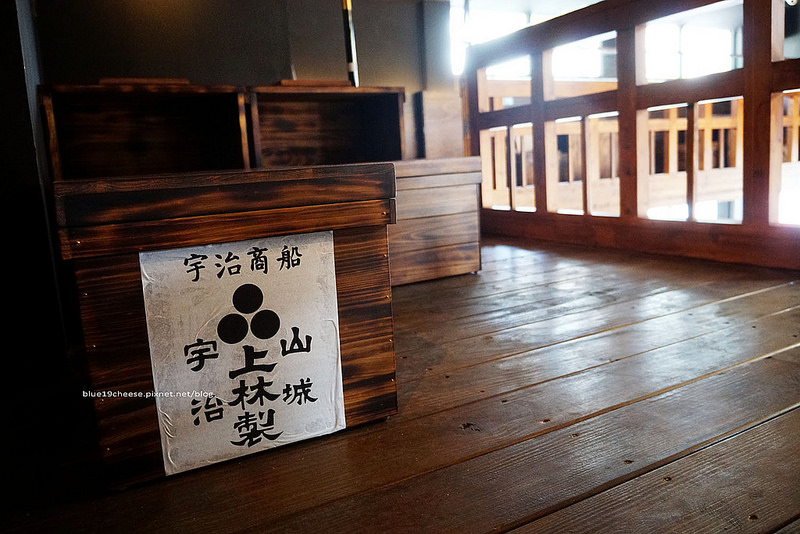 宇治商船
山城
上林製
宇治
blue19cheese.pixnet.net/blog